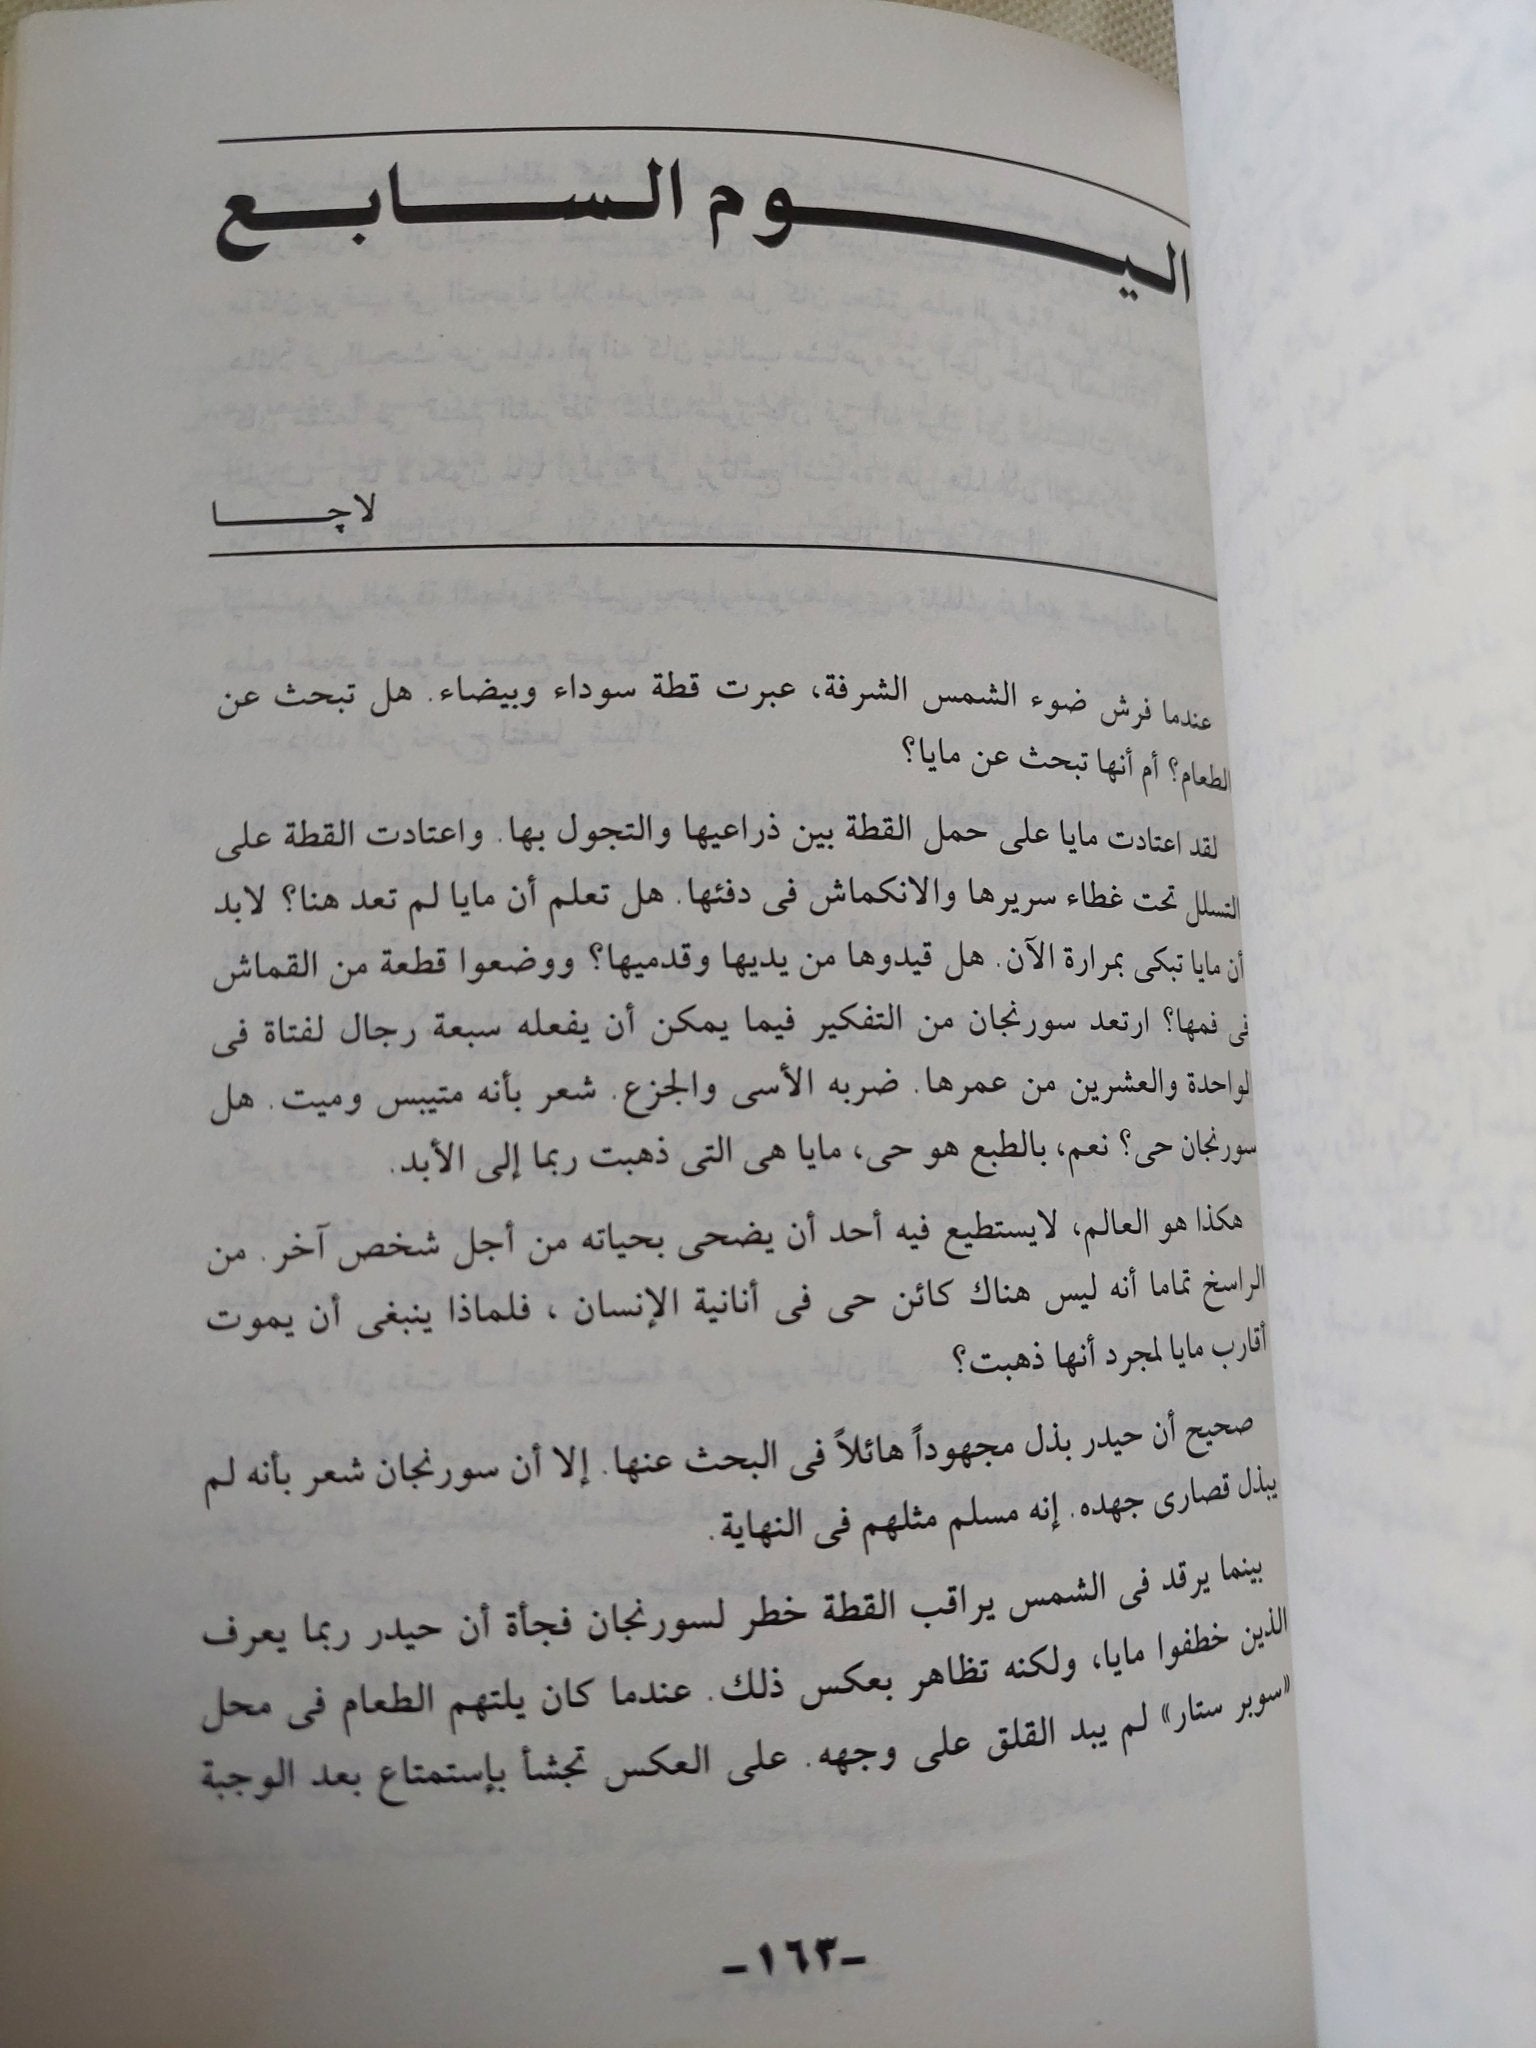 اليوم السابع
لاچا
عندما فرش ضوء الشمس الشرفة، عبرت قطة سوداء وبيضاء. هل تبحث عن
الطعام؟ أم أنها تبحث عن مايا؟
لقد اعتادت مايا على حمل القطة بين ذراعيها والتجول بها. واعتادت القطة على
التسلل تحت غطاء سريرها والانكماش فى دفئها. هل تعلم أن مايا لم تعد هنا؟ لابد
أن مايا تبكى بمرارة الآن. هل قيدوها من يديها وقدميها؟ ووضعوا قطعة من القماش
فى فمها؟ ارتعد سورنجان من التفكير فيما يمكن أن يفعله سبعة رجال لفتاة فى
لواحدة والعشرين من عمرها. ضربه الأسى والجزع. شعر بأنه متيبس وميت. هل
سورنجان حى؟ نعم، بالطبع هو حى، مايا هى التى ذهبت ربما إلى الأبد.
هكذا هو العالم، لايستطيع فيه أحد أن يضحى بحياته من أجل شخص آخر. من
الراسخ تماما أنه ليس هناك كائن حى فى أنانية الإنسان ، فلماذا ينبغى أن يموت
أقارب مايا لمجرد أنها ذهبت؟
صحيح أن حيدر بذل مجهوداً هائلاً فى البحث عنها. إلا أن سورنجان شعر بأنه لم
يبذل قصارى جهده. إنه مسلم مثلهم فى النهاية.
بينما يرقد فى الشمس يراقب القطة خطر لسورنجان فجأة أن حيدر ربما يعرف
الذين خطفوا مايا، ولكنه تظاهر بعكس ذلك. عندما كان يلتهم الطعام فى محل
«سوبر ستار» لم يبد القلق على وجهه. على العكس تجشأ بإستمتاع بعد الوجبة
-١٦٣-